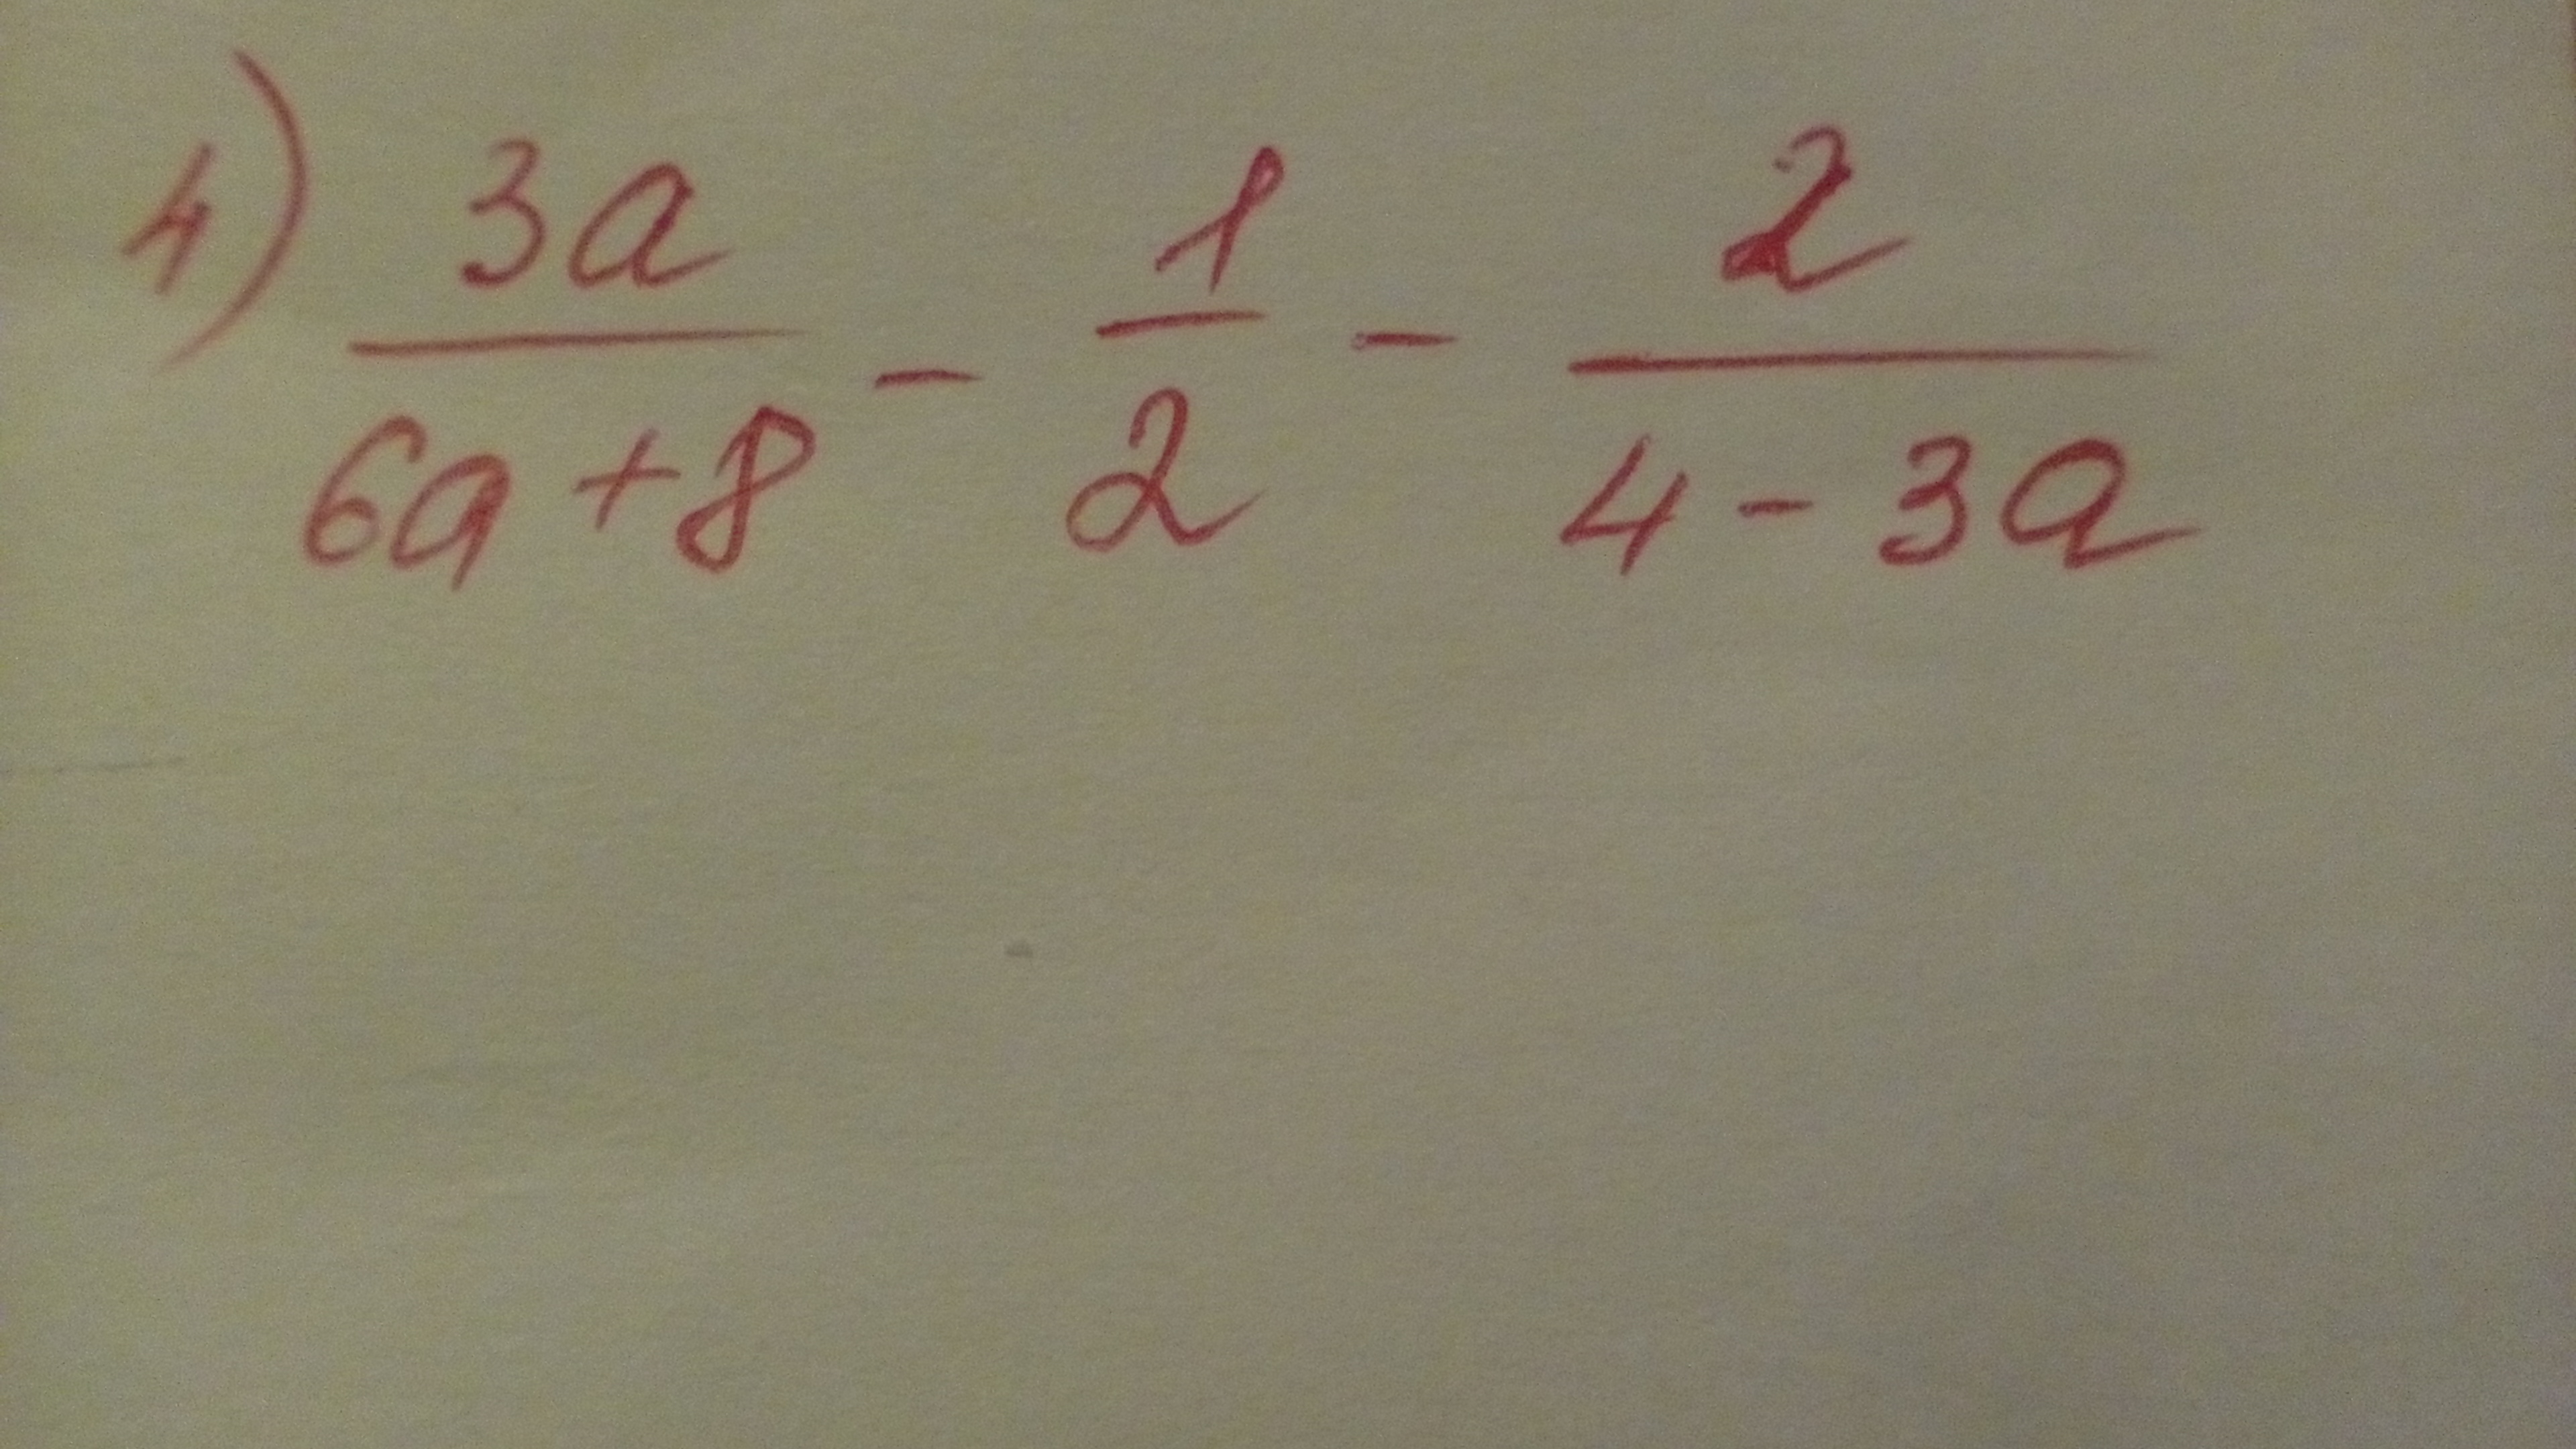 4) 3a/(6a+8) - 1/2 - 2/(4-3a)